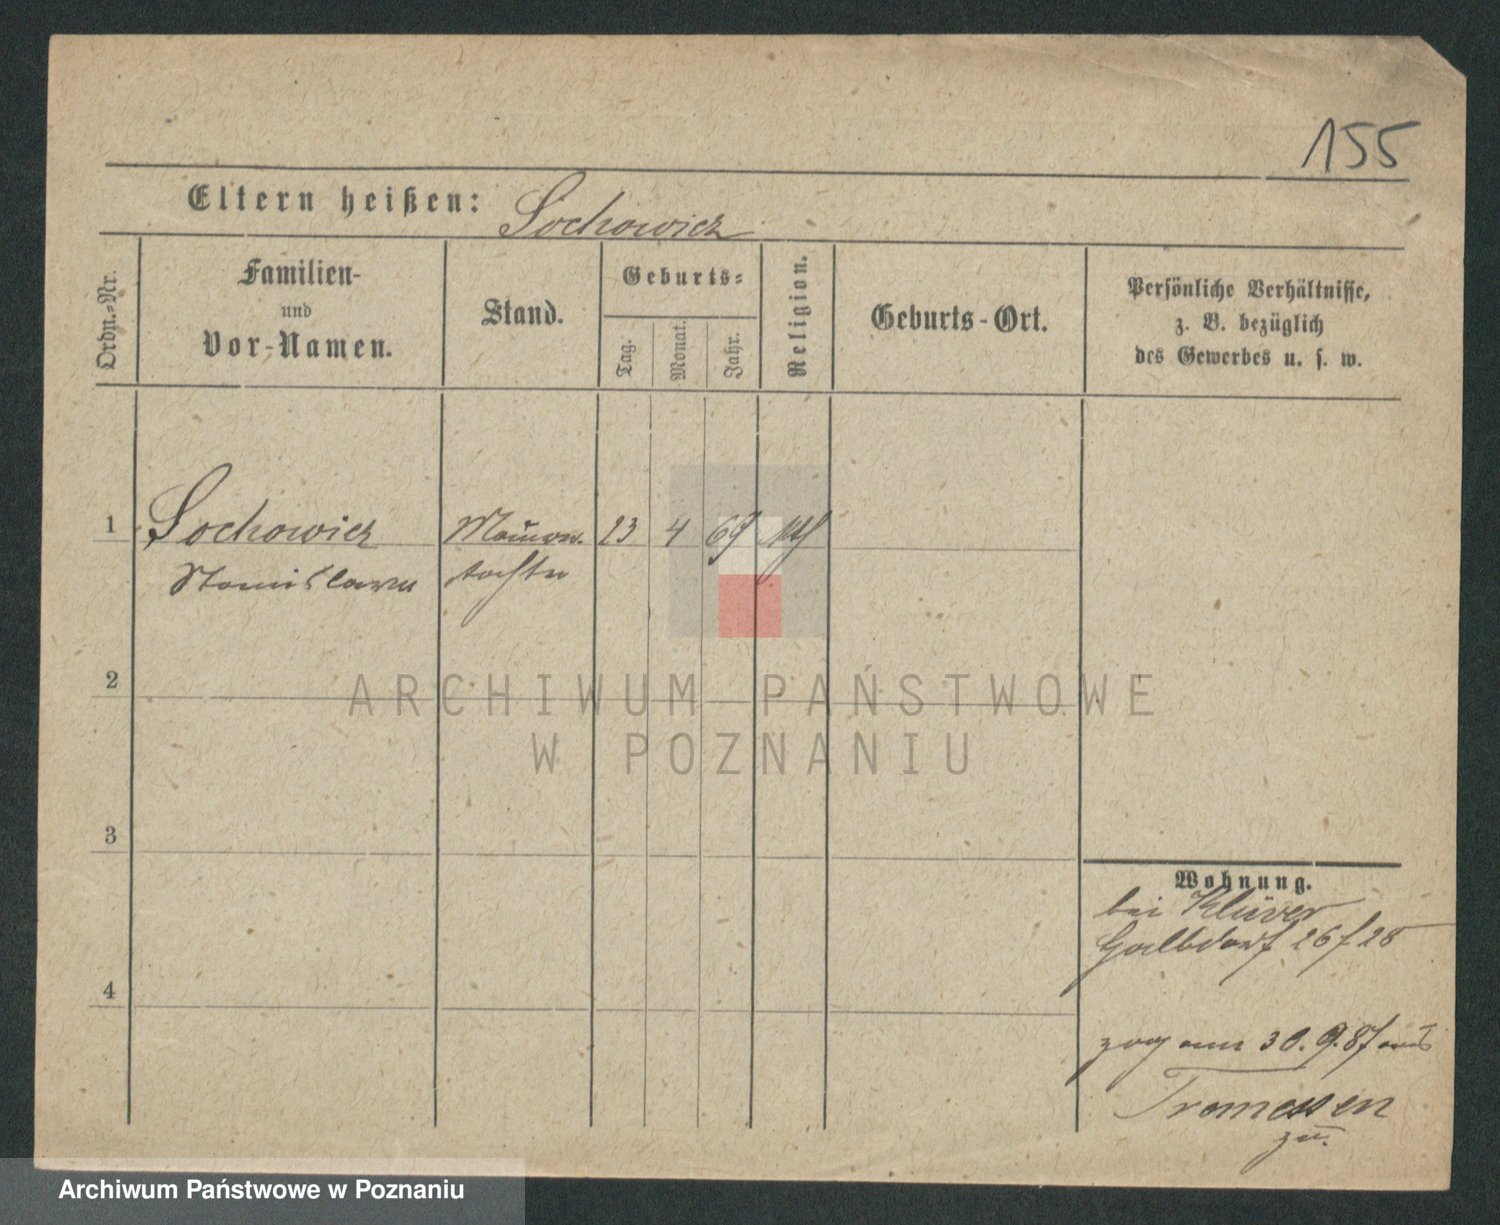 155
Eltern heißen: Sochowicz
Ordn.-Nr.
Familien-
und
Vor-Namen.
Stand.
Geburts-
Tag.
Monat.
Jahr.
Religion.
Geburts-Ort.
Persönliche Verhältnisse,
z. B. bezüglich
des Gewerbes u. s. w.
1 Sochowicz 23 4 69
Stanislawa tochter
2
3
4
ARCHIWUM PAŃSTWOWE
W POZNANIU
Wohnung.
bei Klüver
Halbdorf 26/28
zog am 30.9.87 aus
Tremessen
zu.
Archiwum Państwowe w Poznaniu